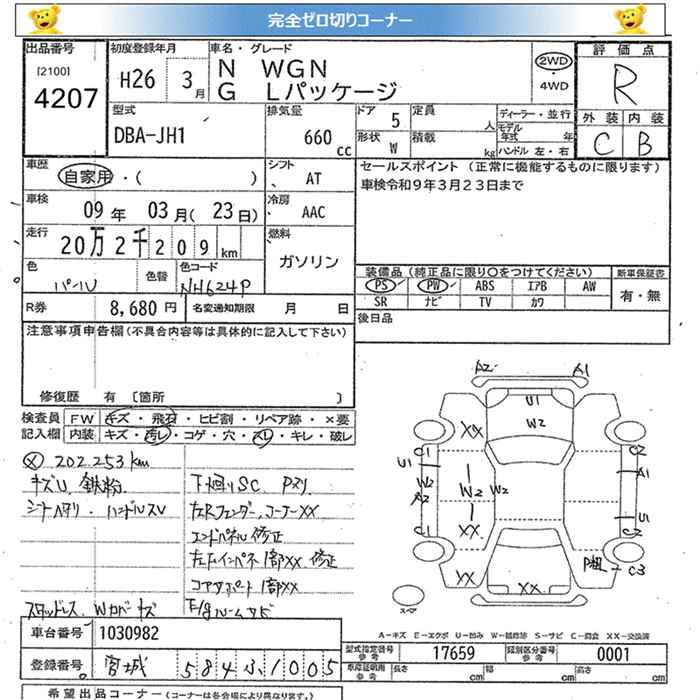 完全ゼロ切りコーナー
出品番号 初度登録年月 車名・グレード 評価点
[2100] 4207 H26 3月 N WGN 2WD R
G Lパッケージ ・4WD
型式 排気量 ドア 5 定員 人 ディーラー・並行 外装 内装
DBA-JH1 660 cc 形状 W 積載 kg モデル年式 年 C B
ハンドル 左・右
車歴 シフト セールスポイント (正常に機能するものに限ります)
自家用・( ) AT 車検令和9年3月23日まで
車検 冷房
09年 03月(23日) AAC
走行 燃料
20万2千209km ガソリン
色 色替 色コード 装備品(純正品に限り○をつけてください) 新車保証書
パール NH624P PS PW ABS エアB AW 有・無
SR ナビ TV カワ
R券 8,680円 名変通知期限 月 日 後日品
注意事項申告欄(不具合内容等は具体的に記入して下さい)
修復歴 有 [箇所 ]
検査員 FW キズ・飛石・ヒビ割・リペア跡・×要
記入欄 内装 キズ・汚レ・コゲ・穴・スレ・キレ・破レ
202253km
キズU 鉄粉 下廻りSC Pスリ
シートヘタリ・ハンドルスレ
エンドパネル修正
コアサポート1部XX
スタッドレス Wカバーキズ E/gルームサビ
A2 A1
U1
W2
XX
C1 C2
U1 A1
W2 W2 W2
A2
U1
C1 XX C2
P粗 C3
XX XX
スペア
A-キズ E-エクボ U-凹み W-補修跡 S-サビ C-腐食 XX-交換済
車台番号 1030982
型式指定番号 参考 17659 類別区分番号 参考 0001
登録番号 宮城 584 い1005
車庫証明用 参考 長さ cm 幅 cm 高さ cm
希望出品コーナー(コーナーは各会場により異なります。)